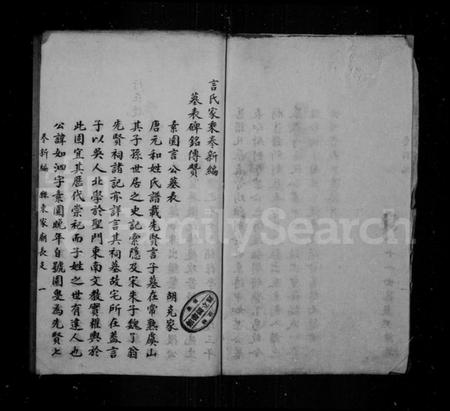 言氏家乘奉新編
墓表碑銘傳贊
素園言公墓表
胡克家
唐元和姓氏譜載先賢言子墓在常熟虞山
其子孫世居之史記索隱及宋朱子魏了翁
先賢祠諸記亦詳言其祠墓故宅所在蓋言
子以吳人北學於聖門東南文教實權輿於
此固宜其歷代崇祀而子姓之世有達人也
公諱如泗字素園晚年自號園叟為先賢七
奉新編
FamilySearch